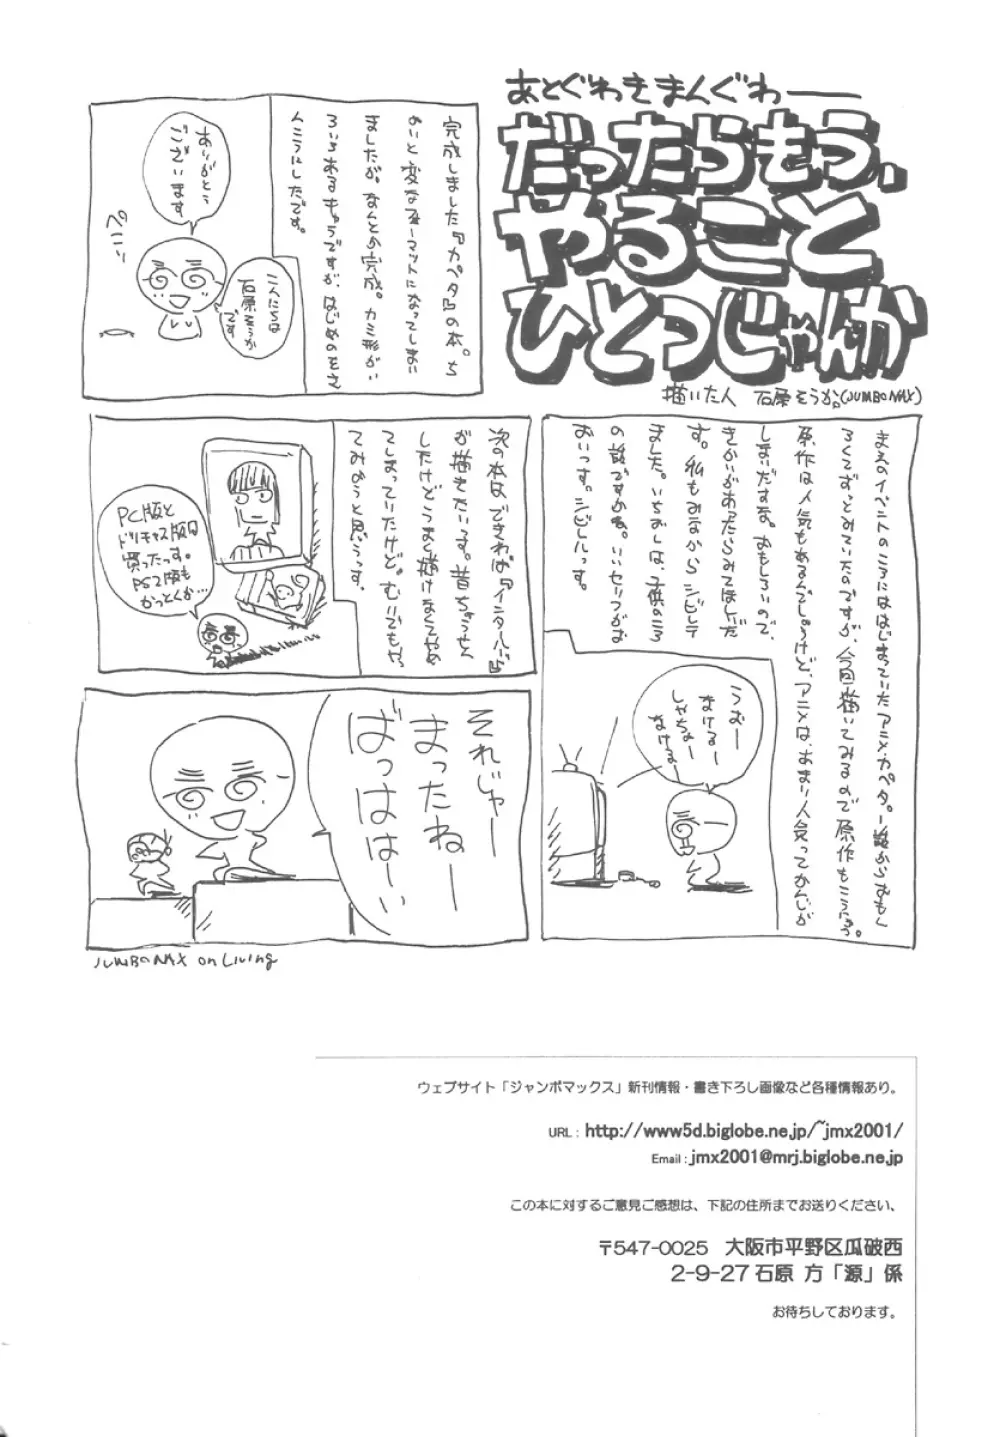 あとぐわきまんぐわ——
だったらもう、
やること
ひとつじゃんか
描いた人 石原そうか。(JUMBOMAX)
完成しました『カペタ』の本。ち
ょいと変なフォーマットになってしまい
ましたが、なんとか完成。カミ形がい
ろいろあるキャラですが、はじめのをさ
んこうにしたです。
ありがとう
ございます
こんにちは
石原そうか
です
ぺこり
まえのイベントのころにははじまっていたアニメ・カペタ。一話からおもし
ろくてずっとみていたのですが、今回描いてみるので原作もこうにゅう。
原作は人気もあるんでしょうけど、アニメは、あまり人気ってかんじが
しまいだすな。おもしろいので、
きかいがあったらみてほしいだ
す。私もみながらシビレテ
ました。いちおしは、子供のころ
の話ですかね。いいセリフがお
おいっす。シビレルっす。
うむー
なけるー
しゃちょー
なけるー
次の本は、できれば『イニタルD』
が描きたいっす。昔ちょうせん
したけどうまく描けなくてやめ
てしまっていたけど。むりでもや、
てみようと思うっす。
PC版と
ドリキャス版は
買ったっす。
PS2版も
かっとくか…
それじゃー
まったねー
ばっはは〜い
JUMBOMAX on Living
ウェブサイト「ジャンボマックス」新刊情報・書き下ろし画像など各種情報あり。
URL : http://www5d.biglobe.ne.jp/~jmx2001/
Email : jmx2001@mrj.biglobe.ne.jp
この本に対するご意見ご感想は、下記の住所までお送りください、
〒547-0025 大阪市平野区瓜破西
2-9-27 石原 方「源」係
お待ちしております。